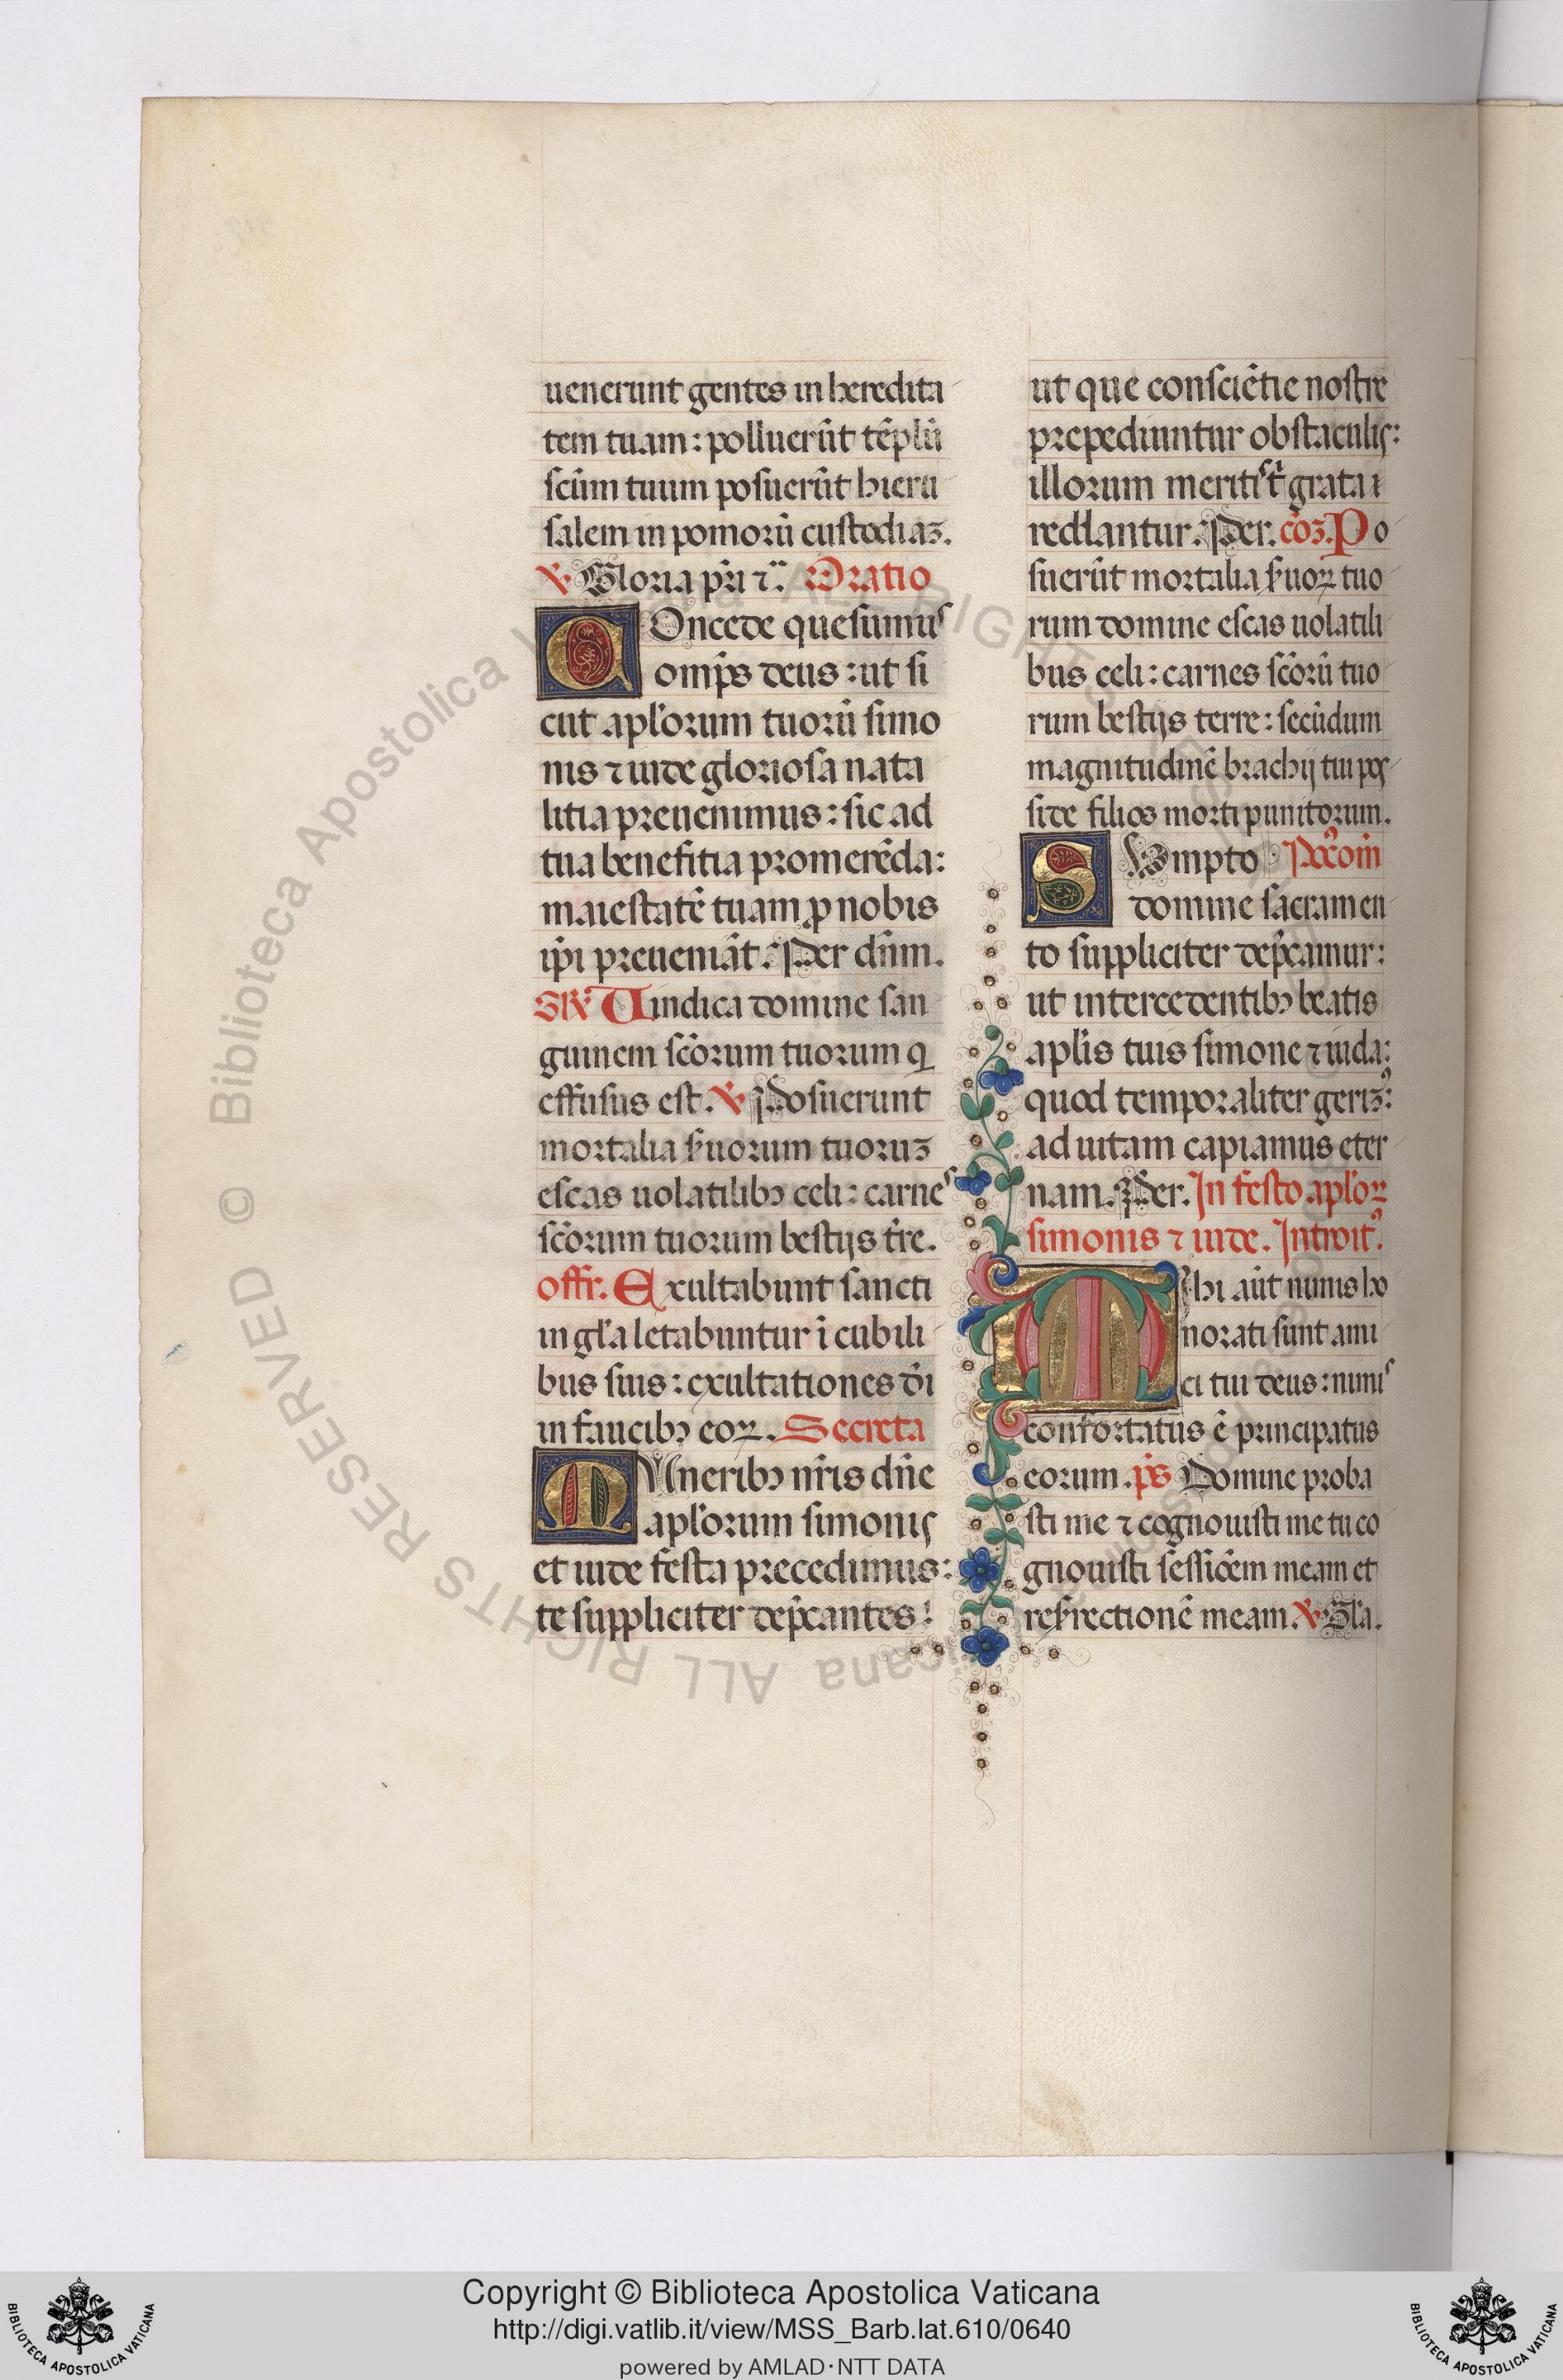 uenerunt gentes in heredita
tem tuam : polluerūt tēplū
scūm tuum posuerūt hieru
salem in pomorū custodiaꝫ.
℣ Gloria pr̄i ⁊c̄. Oratio
COncede quesumus
omp̄s deus : ut si
cut apl'orum tuorū simo
nis ⁊ iude gloriosa nata
litia preuenimus : sic ad
tua benefitia promerēda :
maiestatē tuam ꝓ nobis
ip̄i preueniāt. Per dn̄m.
Uindica domine san
guinem sc̄orum tuorum q
effusus est. ℣ Posuerunt
mortalia s̄uorum tuoruꝫ
escas uolatilibꝰ celi : carnes
sc̄orum tuorum bestijs t̄re.
offr. Exultabunt sancti
in gl'a letabuntur ī cubili
bus suis : exultationes d̄i
in faucibꝰ eoꝝ. Secreta
MUneribꝰ nr̄is dn̄e
apl'orum simonis
et iude festa precedimus :
te suppliciter dep̄cantes :
ut que consciētie nostre
prepediuntur obstaculis :
illorum meritis t̄ grata i
reddantur. Per. cōꝫ. Po
suerūt mortalia s̄uoꝝ tuo
rum domine escas uolatili
bus celi : carnes sc̄orū tuo
rum bestijs terre : secūdum
magnitudinē brachij tui pos
side filios morti punitorum.
SUmpto Pꝰcom̄
domine sacramen
to suppliciter dep̄camur :
ut intercedentibꝰ beatis
apl'is tuis simone ⁊ iuda :
quod temporaliter geriꝫꝰ :
ad uitam capiamus eter
nam. Per. In festo apl'oꝝ
simonis ⁊ iude. Introitꝰ.
MIhi aūt nimis ho
norati sunt ami
ci tui deus : nimis
confortatus ē principatus
eorum. p̄s Domine proba
sti me ⁊ cognouisti me tu co
gnouisti sessiōem meam et
resrectionē meam. ℣ Gl'a.
© Biblioteca Apostolica Vaticana ALL RIGHTS RESERVED
Copyright © Biblioteca Apostolica Vaticana
http://digi.vatlib.it/view/MSS_Barb.lat.610/0640
powered by AMLAD·NTT DATA
BIBLIOTECA APOSTOLICA VATICANA
BIBLIOTECA APOSTOLICA VATICANA